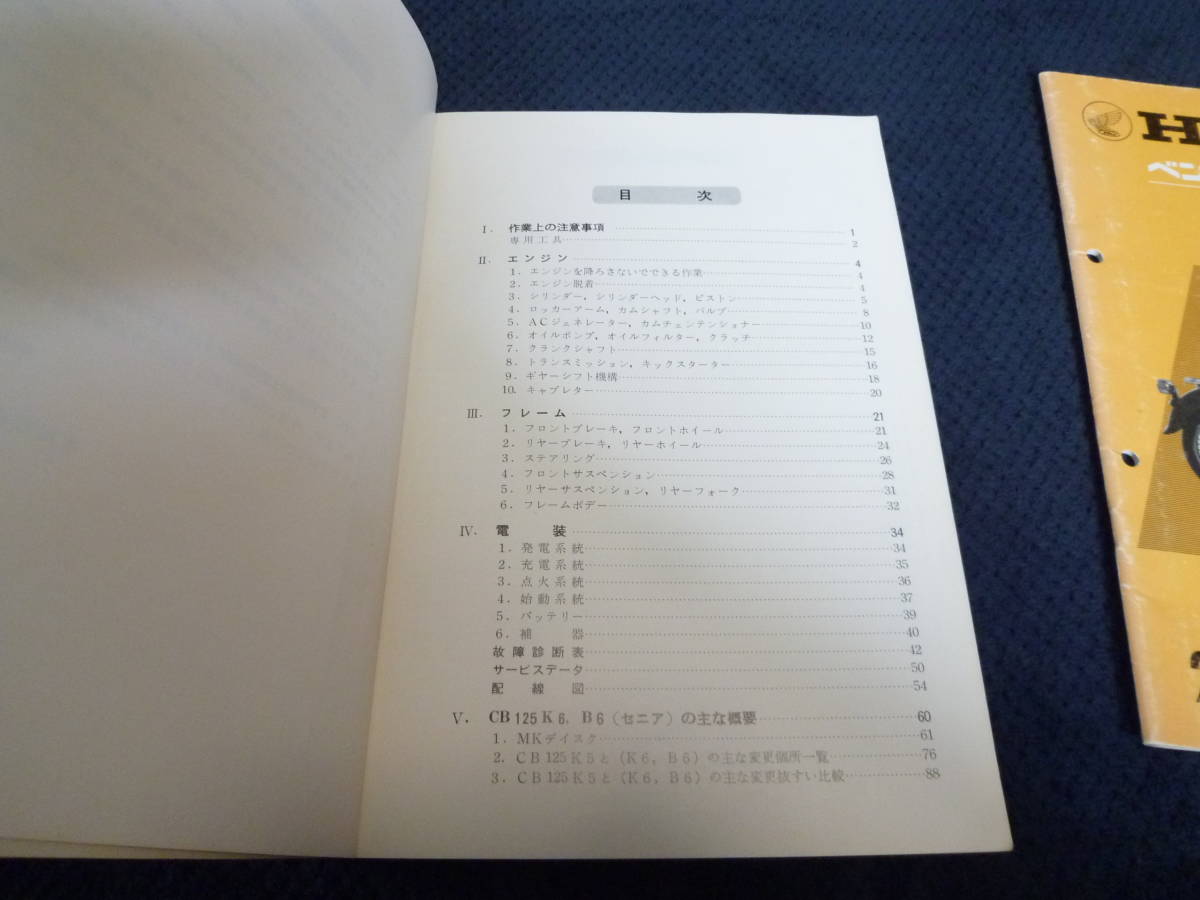 目 次
I. 作業上の注意事項 1
専用工具 2
II. エンジン 4
1. エンジンを降ろさないでできる作業 4
2. エンジン脱着 4
3. シリンダー, シリンダーヘッド, ピストン 5
4. ロッカーアーム, カムシャフト, バルブ 8
5. ACジェネレーター, カムチェンテンショナー 10
6. オイルポンプ, オイルフィルター, クラッチ 12
7. クランクシャフト 15
8. トランスミッション, キックスターター 16
9. ギヤーシフト機構 18
10. キャブレター 20
III. フレーム 21
1. フロントブレーキ, フロントホイール 21
2. リヤーブレーキ, リヤーホイール 24
3. ステアリング 26
4. フロントサスペンション 28
5. リヤーサスペンション, リヤーフォーク 31
6. フレームボデー 32
IV. 電 装 34
1. 発電系統 34
2. 充電系統 35
3. 点火系統 36
4. 始動系統 37
5. バッテリー 39
6. 補 器 40
故障診断表 42
サービスデータ 50
配 線 図 54
V. CB125K6, B6(セニア)の主な概要 60
1. MKデイスク 61
2. CB125K5と(K6, B6)の主な変更個所一覧 76
3. CB125K5と(K6, B6)の主な変更抜すい比較 88
H
ベン